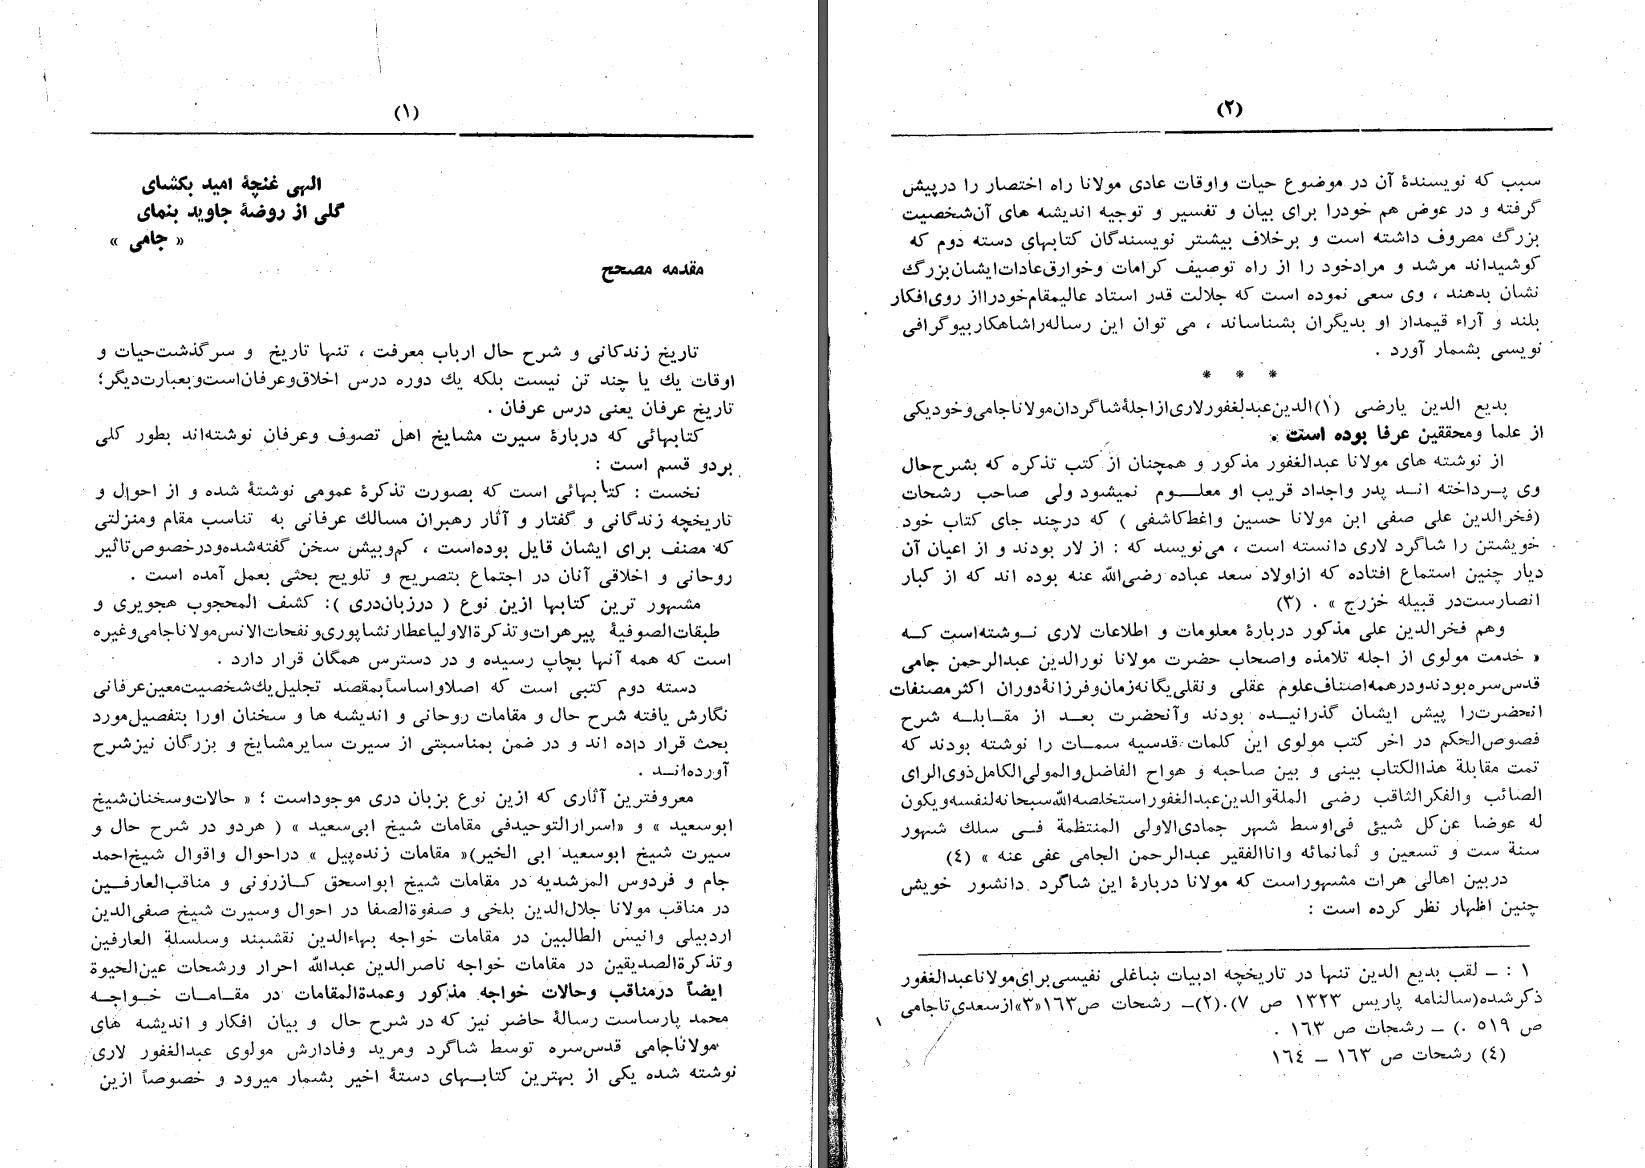 (۱)
الهی غنچهٔ امید بکشای
گلی از روضهٔ جاوید بنمای
« جامی »
مقدمه مصحح
تاریخ زندگانی و شرح حال ارباب معرفت ، تنها تاریخ و سرگذشت حیات و
اوقات یك یا چند تن نیست بلکه یك دوره درس اخلاق و عرفان است و بعبارت دیگر؛
تاریخ عرفان یعنی درس عرفان .
کتابهائی که دربارهٔ سیرت مشایخ اهل تصوف وعرفان نوشته‌اند بطور کلی
بردو قسم است :
نخست : کتابهائی است که بصورت تذکرهٔ عمومی نوشتهٔ شده و از احوال و
تاریخچه زندگانی و گفتار و آثار رهبران مسالك عرفانی به تناسب مقام ومنزلتی
که مصنف برای ایشان قایل بوده‌است ، کم‌وبیش سخن گفته‌شده‌ودرخصوص تاثیر
روحانی و اخلاقی آنان در اجتماع بتصریح و تلویح بحثی بعمل آمده است .
مشهور ترین کتابها ازین نوع ( درزبان‌دری ): کشف المحجوب هجویری و
طبقات‌الصوفیهٔ پیرهرات‌وتذکرة‌الاولیاعطارنشاپوری‌ونفحات‌الانس‌مولاناجامی‌وغیره
است که همه آنها بچاپ رسیده و در دسترس همگان قرار دارد .
دسته دوم کتبی است که اصلاواساساًبمقصد تجلیل‌یك‌شخصیت‌معین‌عرفانی
نگارش یافته شرح حال و مقامات روحانی و اندیشه ها و سخنان اورا بتفصیل‌مورد
بحث قرار داده اند و در ضمن بمناسبتی از سیرت سایرمشایخ و بزرگان نیزشرح
آورده‌انـد .
معروفترین آثاری که ازین نوع بزبان دری موجوداست ؛ « حالات‌وسخنان‌شیخ
ابوسعید » و «اسرارالتوحیدفی مقامات شیخ ابی‌سعید » ( هردو در شرح حال و
سیرت شیخ ابوسعید ابی الخیر)« مقامات زنده‌پیل » دراحوال واقوال شیخ‌احمد
جام و فردوس المرشدیه در مقامات شیخ ابواسحق کـازرونی و مناقب‌العارفـین
در مناقب مولانا جلال‌الدین بلخی و صفوة‌الصفا در احوال وسیرت شیخ صفی‌الدین
اردبیلی وانیس الطالبین در مقامات خواجه بهاءالدین نقشبند وسلسلة العارفین
وتذکرة‌الصدیقین در مقامات خواجه ناصرالدین عبدالله احرار ورشحات عین‌الحیوة
ایضاً درمناقب وحالات خواجه مذکور وعمدة‌المقامات در مقـامـات خـواجـه
محمد پارساست رسالهٔ حاضر نیز که در شرح حال و بیان افکار و اندیشه های
مولاناجامی قدس‌سره توسط شاگرد ومرید وفادارش مولوی عبدالغفور لاری
نوشته شده یکی از بهترین کتابـهای دستهٔ اخیر بشمار میرود و خصوصاً ازین
(۲)
سبب که نویسندهٔ آن در موضوع حیات واوقات عادی مولانا راه اختصار را درپیش
گرفته و در عوض هم خودرا برای بیان و تفسیر و توجیه اندیشه های آن‌شخصیت
بزرگ مصروف داشته است و برخلاف بیشتر نویسندگان کتابهای دسته دوم که
کوشیده‌اند مرشد و مرادخود را از راه توصیف کرامات وخوارق‌عادات‌ایشان‌بزرگ
نشان بدهند ، وی سعی نموده است که جلالت قدر استاد عالیمقام‌خودرااز روی‌افکار
بلند و آراء قیمدار او بدیگران بشناساند ، می توان این رساله‌راشاهکار‌بیوگرافی
نویسی بشمار آورد .
* * *
بدیع الدین یارضی (۱)الدین‌عبدلغفورلاری‌ازاجلهٔ‌شاگردان‌مولاناجامی‌وخودیکی
از علما ومحققین عرفا بوده است .
از نوشته های مولانا عبدالغفور مذکور و همچنان از کتب تذکره که بشرح‌حال
وی پـرداخته انـد پدر واجداد قریب او معلـوم نمیشود ولی صاحب رشحات
(فخرالدین علی صفی ابن مولانا حسین واغط‌کاشفی ) که درچند جای کتاب خود
خویشتن را شاگرد لاری دانسته است ، می‌نویسد که : از لار بودند و از اعیان آن
دیار چنین استماع افتاده که ازاولاد سعد عباده رضی‌الله عنه بوده اند که از کبار
انصارست‌در قبیله خزرج » . (۳)
وهم فخرالدین علی مذکور دربارهٔ معلومات و اطلاعات لاری نـوشته‌است کـه
« خدمت مولوی از اجله تلامذه واصحاب حضرت مولانا نورالدین عبدالرحمن جامی
قدس‌سره‌بودندودرهمه‌اصناف‌علوم عقلی ونقلی‌یگانه‌زمان‌وفرزانهٔ‌دوران اکثر‌مصنفات
انحضرت‌را پیش ایشان گذرانیـده بودند وآنحضرت بعـد از مقـابلـه شرح
فصوص‌الحکم در اخر کتب مولوی این کلمات قدسیه سمـات را نوشته بودند که
تمت مقابلة هذاالکتاب بینی و بین صاحبه و هواح الفاضل‌والمولی‌الکامل‌ذوی‌الرای
الصائب والفکرالثاقب رضی الملة‌والدین‌عبدالغفوراستخلصه‌الله‌سبحانه‌لنفسه‌ویکون
له عوضا عن‌کل شیئی فی‌اوسط شهر جمادی‌الاولی المنتظمة فـی سلك شهور
سنة ست و تسعین و ثمانمائه واناالفقیر عبدالرحمن الجامی عفی عنه » (٤)
دربین اهالی هرات مشهوراست که مولانا دربارهٔ این شاگرد دانشور خویش
چنین اظهار نظر کرده است :
۱ : ــ لقب بدیع الدین تنها در تاریخچه ادبیات شاغلی نفیسی برای‌مولاناعبدالغفور
ذکرشده(سالنامه پاریس ۱۳۲۳ ص ۷).(۲)ــ رشحات ص۱٦۳«۳»ازسعدی‌تاجامی
ص ٥۱۹ .) ــ رشحات ص ۱٦۳ .
(٤) رشحات ص ۱٦۳ ــ ۱٦٤